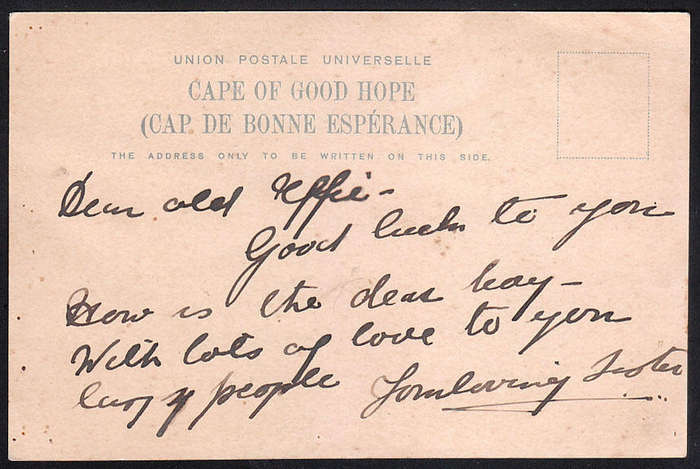 UNION POSTALE UNIVERSELLE
CAPE OF GOOD HOPE
(CAP DE BONNE ESPÉRANCE)
THE ADDRESS ONLY TO BE WRITTEN ON THIS SIDE.
Dear old Effie-
Good luck to you
How is the dear
With lots of love to you
people Your loving Sister